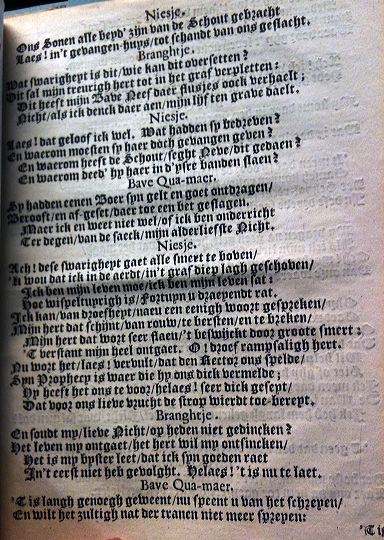 Niesje.
Ons Sonen alle beyd' zijn van de Schout gebracht
Laes! in't gevangen-huys/ tot schandt van ons geslacht.
Branghtje.
Wat swarigheyt is dit/ wie kan dit oversetten?
Dit sal mijn treurigh hert tot in het graf verpletten:
Dit heeft mijn Bave Neef daer flusjes oock verhaelt;
Nicht/ als ick denck daer aen/ mijn lijf ten grave daelt.
Niesje.
Laes! dat geloof ick wel. Wat hadden sy bedreven?
En waerom moesten sy haer doch gevangen geven?
En waerom heeft de Schout/ seght Neve/ dit gedaen?
En waerom deed' hy haer in d'ysre banden slaen?
Bave Qua-maer.
Sy hadden eenen Boer syn gelt en goet ontdragen/
Berooft/ en af-geset/ daer toe een bét geslagen.
Maer ick en weet niet wel/ of ick ben onderricht
Ter degen/ van de saeck/ mijn alderliefste Nicht.
Niesje.
Ach! dese swarigheyt gaet alle smert te boven/
'k wou dat ick in de aerdt/ in't graf diep lagh geschoven/
Ick ben mijn leven moe/ ick ben mijn leven sat:
Hoe wispelturigh is/ Fortuyn u draeyendt rat.
Ick kan/ van droefheyt/ naeu een eenigh woort gespreken/
Mijn hert dat schijnt/ van rouw/ te bersten/ en te breken/
Mijn hert dat wort seer flaeu/ 't beswijckt door groote smert:
'T verstant mijn heel ontgaet. O! droef rampsaligh hert.
Nu wort het/ laes! vervult/ dat den Rector ons spelde/
Syn Prophecy is waer die hy ons dick vermelde;
Hy heeft het ons te voor/ helaes! seer dick geseyt/
Dat voor ons lieve vrucht de strop wierdt toe-bereyt.
Branghtje.
En soudt my/ lieve Nicht/ op heden niet gedincken?
Het leven my ontgaet/ het hert wil my ontsincken/
Het is my byster leet/ dat ick syn goeden raet
In't eerst niet heb gevolght. Helaes! 't is nu te laet.
Bave Qua-maer.
'T is langh genoegh geweent/ nu speent u van het schreyen/
En wilt het zultigh nat der tranen niet meer spreyen:
'T is